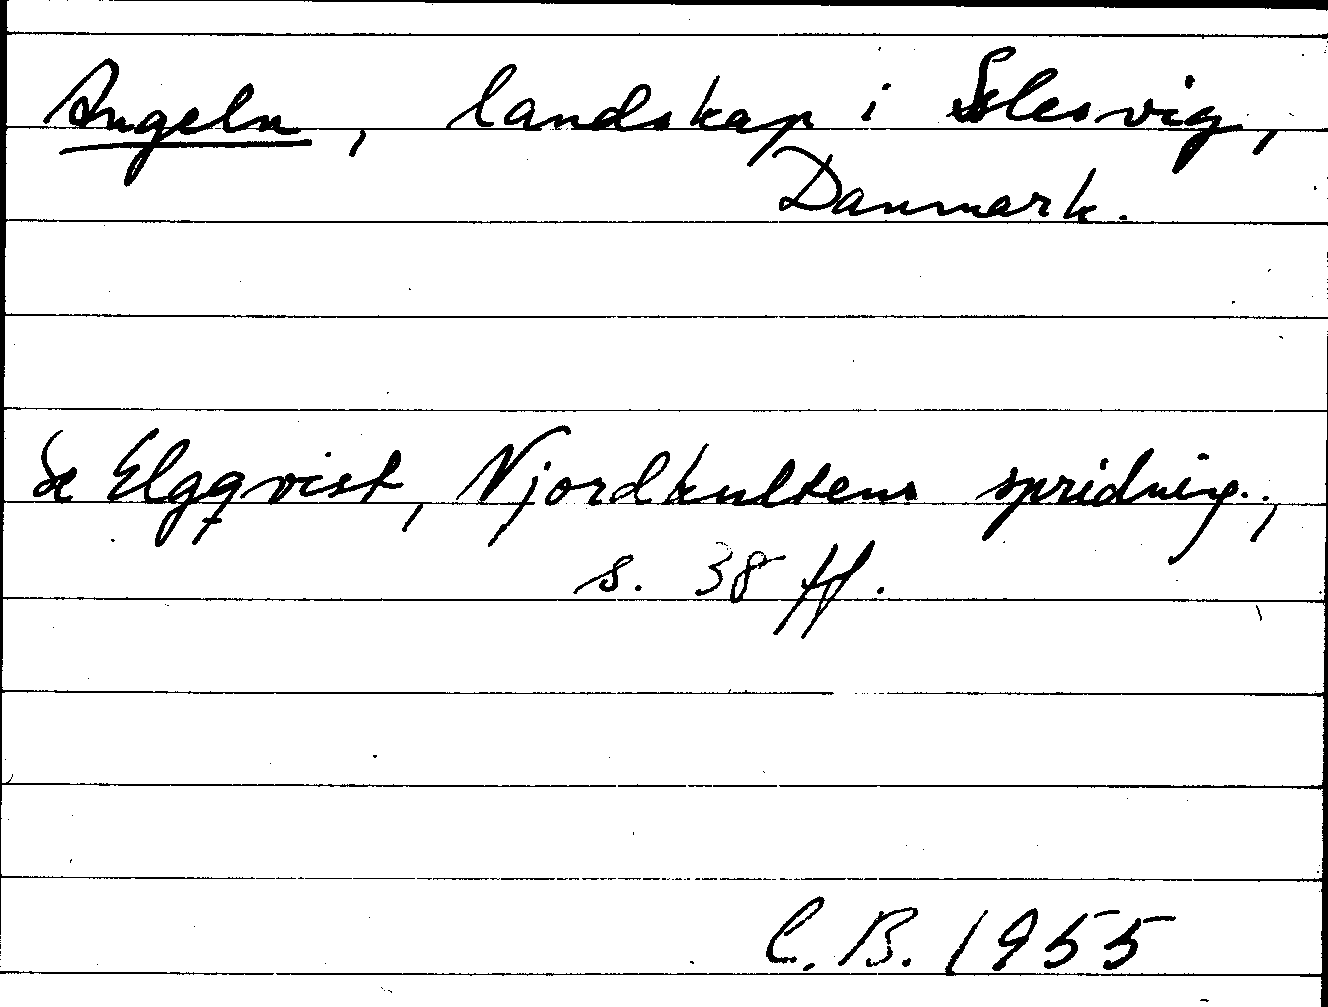 Angeln, landskap i Slesvig,
Danmark.
Se Elgqvist, Njordkultens spridning.,
s. 38 ff.
C. B. 1955